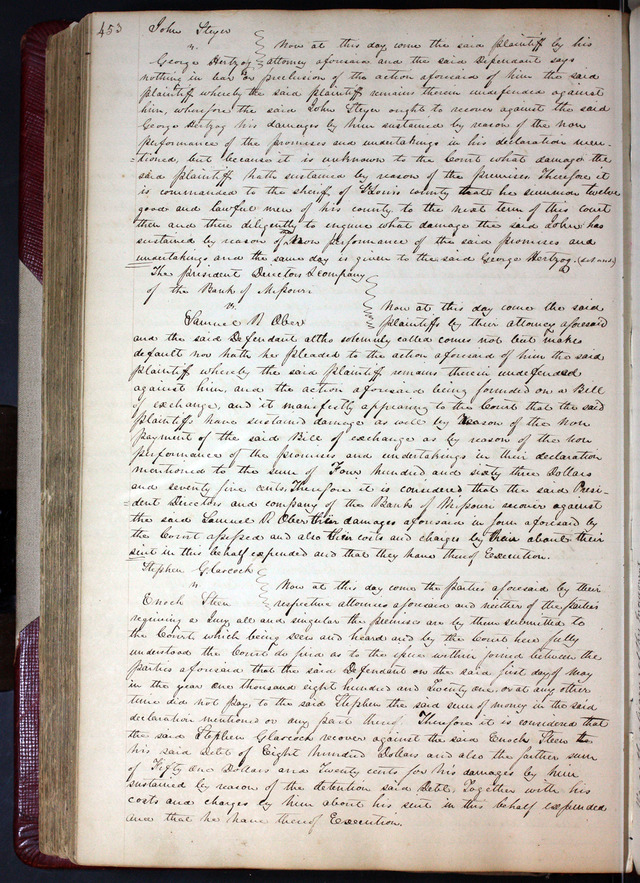 453
John Steyer
v.
George Hertzog
Now at this day come the said plaintiff by his
attorney aforesaid and the said Defendant says
nothing in bar or preclusion of the action aforesaid of him the said
plaintiff whereby the said plaintiff remains therein undefended against
him, wherefore the said John Steyer ought to recover against the said
George Hertzog his damages by him sustained by reason of the non
performance of the promises and undertakings in his declaration men-
-tioned, but because it is unknown to the Court what damage the
said plaintiff hath sustained by reason of the premises Therefore it
is commanded to the sheriff of St Louis county that he summon twelve
good and lawful men of his county to the next term of this court
then and there diligently to enquire what damage the said John has
sustained by reason of the non performance of the said promises and
undertakings and the same day is given to the said George Hertzog.
The president Directors & company
of the Bank of Missouri
vs.
Samuel R Ober
Now at this day come the said
plaintiffs by their attorney aforesaid
and the said Defendant altho solemnly called comes not but makes
default nor hath he pleaded to the action aforesaid of him the said
plaintiff whereby the said plaintiff remains therein undefended
against him, and the action aforesaid being founded on a Bill
of exchange, and it manifestly appearing to the Court that the said
plaintiffs have sustained damage as well by reason of the non
payment of the said Bill of exchange as by reason of the non
performance of the promises and undertakings in their declaration
mentioned to the sum of Four hundred and sixty three Dollars
and seventy five cents. Therefore it is considered that the said Presi-
-dent Directors and company of the Bank of Missouri recover against
the said Samuel R Ober their damages aforesaid in form aforesaid by
the Court assessed and also their costs and charges by them about their
suit in this behalf expended and that they have thereof Execution.
Stephen Glascock
v.
Enoch Steen
Now at this day come the parties aforesaid by their
respective attornies aforesaid and neither of the parties
requiring a Jury all and singular the premises are by them submitted to
the Court which being seen and heard and by the Court here fully
understood the Court do find as to the issue within joined between the
parties aforesaid that the said Defendant on the said first day of May
in the year one thousand eight hundred and Twenty one, or at any other
time did not pay, to the said Stephen the said sum of money in the said
declaration mentioned or any part thereof. Therefore it is considered that
the said Stephen Glascock recover against the said Enoch Steen
his said Debt of Eight hundred Dollars and also the further sum
of Fifty one Dollars and Twenty cents for his damages by him
sustained by reason of the detention said Debt, Together with his
costs and charges by him about his suit in this behalf expended
and that he have thereof Execution.